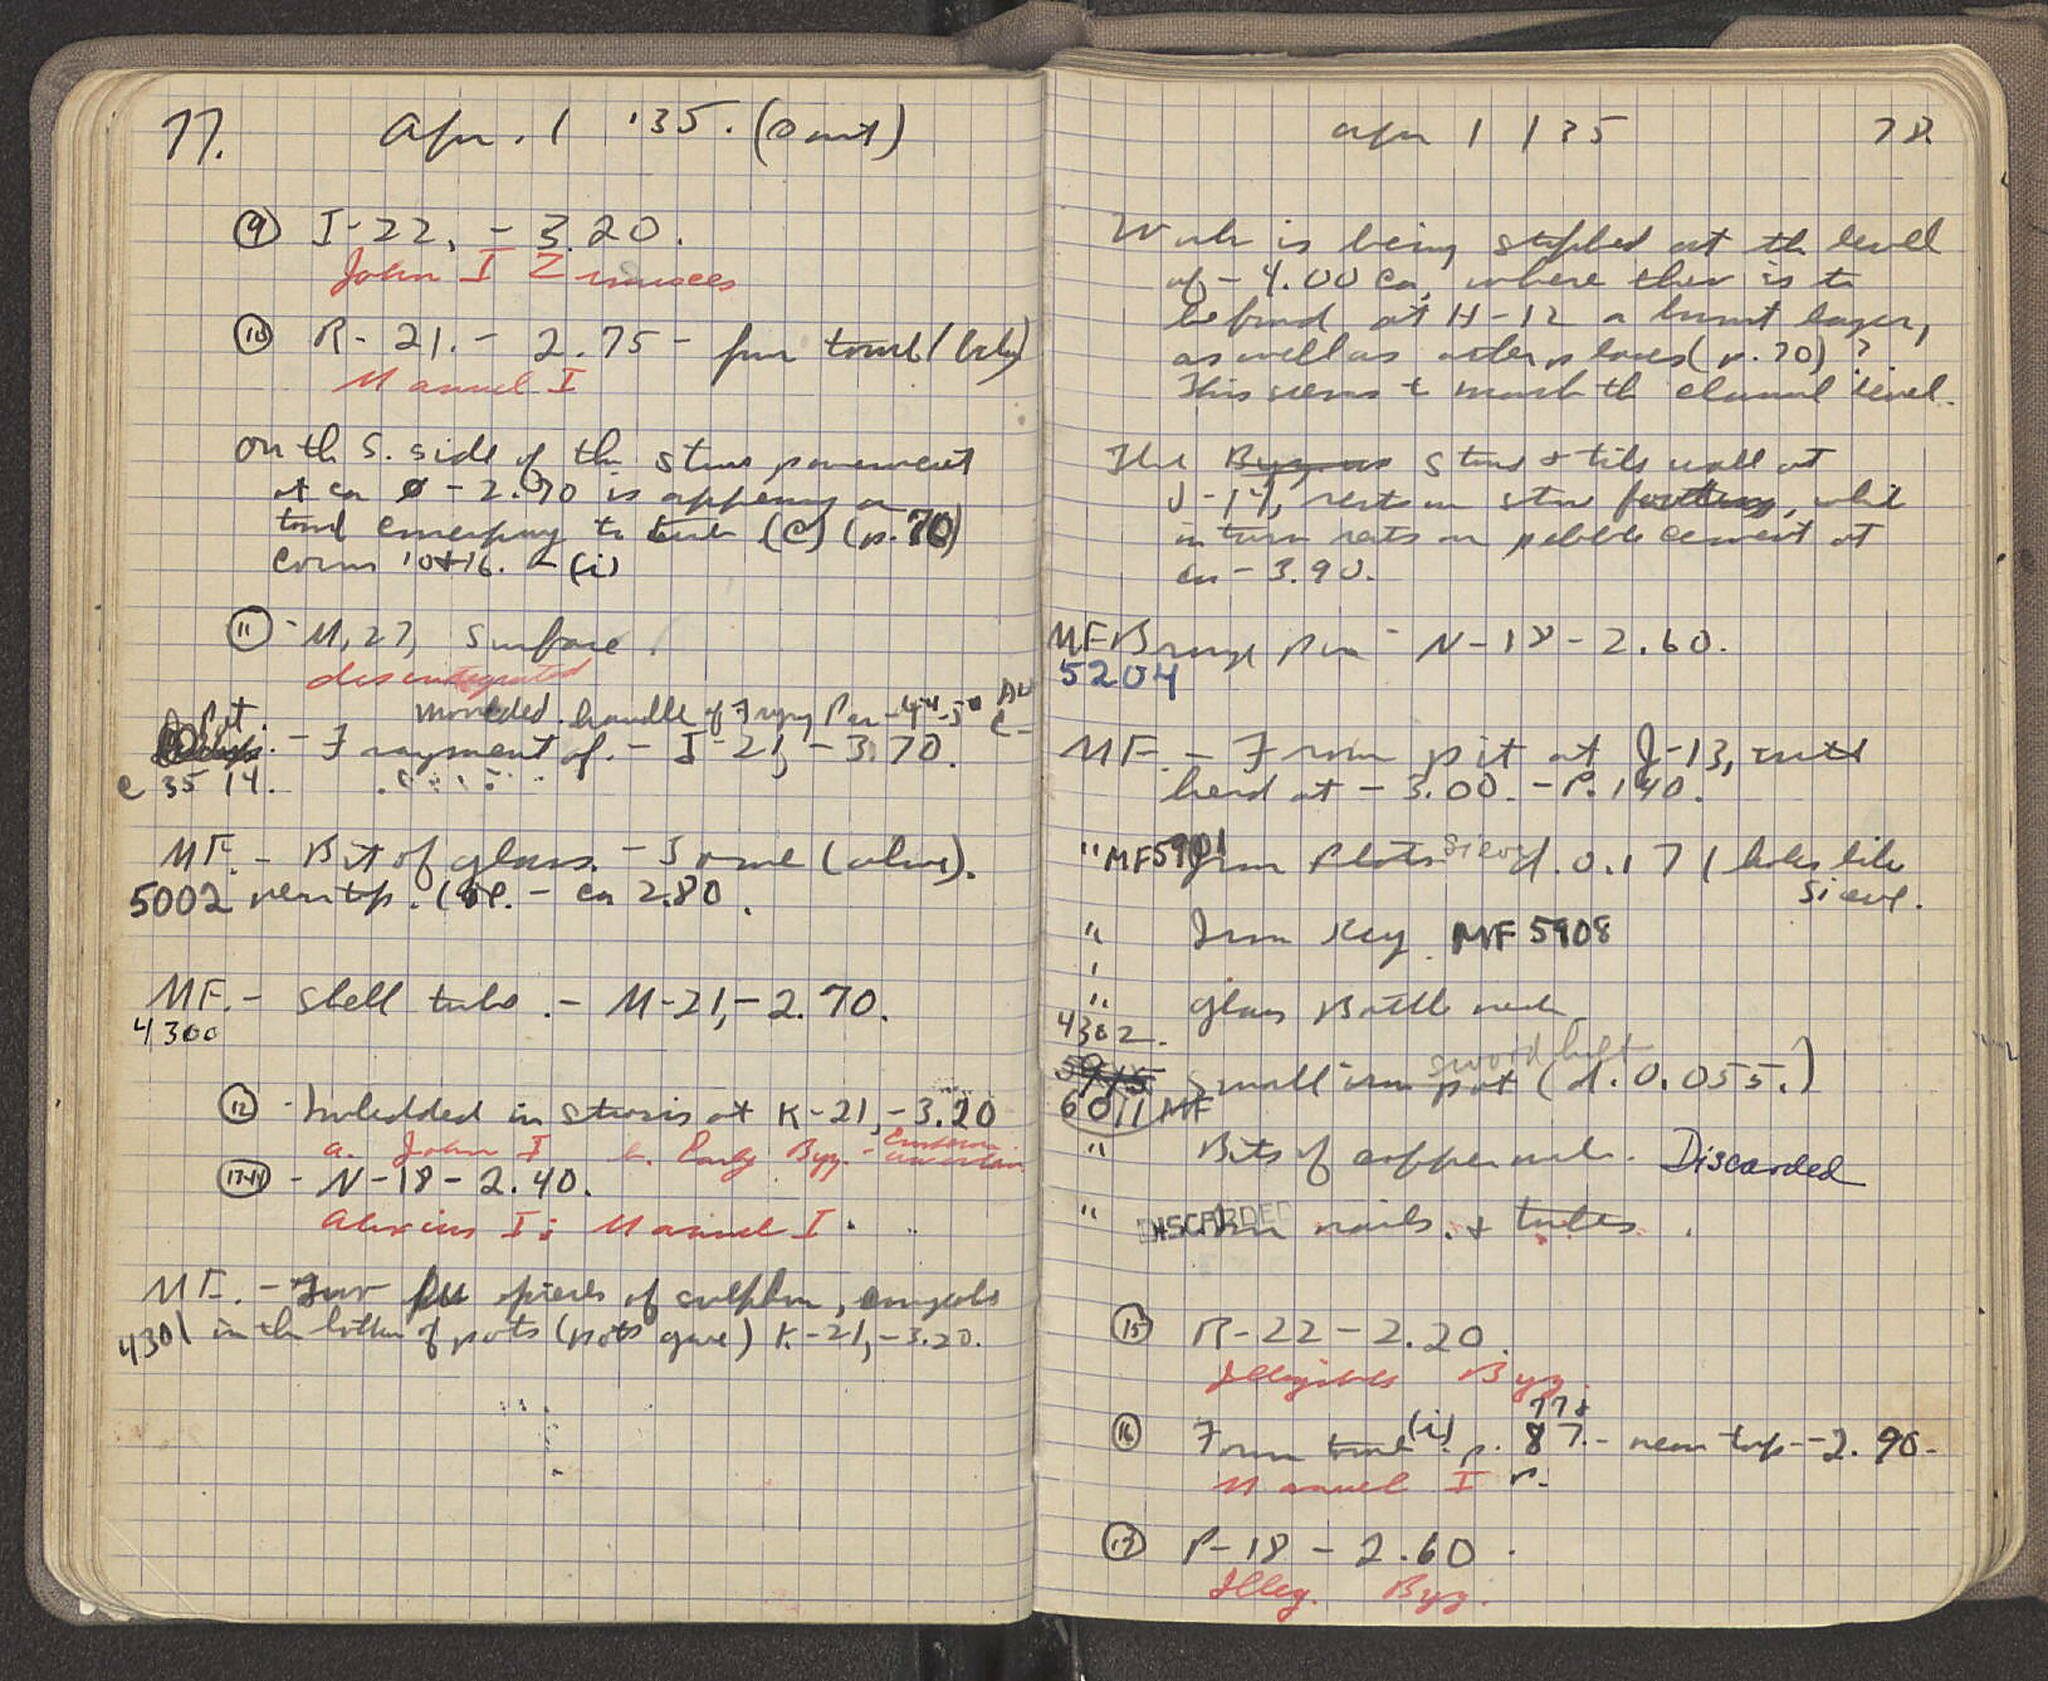 77. Apr. 1 '35. (Cont)
⑨ I-22, - 3.20.
John I Zimisces
⑩ R-21. - 2.75 - from tomb (
Manuel I
On the S. side of the stone pavement
at ca - 2.90 is appearing a
tomb to tomb (C) (p. 70)
Coins 10+16. - (i)
⑪ - M, 27, Surface.
desintegrated
moulded handle of Frying Pan - 44-50
Pot. - Fragment of. - I-21, - 3.70.
C 35 14.
MF. - Bit of glass. - Some (colour).
5002 near top. - ca 2.80.
MF. - Shell tube. - M-21, - 2.70.
4300
⑫ - Imbedded in stosis at K-21, - 3.20
a. John I b. Early Byz. - Emperor uncertain
⑬-⑭ - N-18 - 2.40.
Alexius I; Manuel I.
MF. - Four pieces of sulphur,
4301 in the bottom of pots (pots gone) K-21, - 3.20.
Apr 1 / 35 78.
Work is being stopped at the level
of - 4.00 ca, where there is to
be found at H-12 a burnt layer,
as well as other places (p. 70)?
This seems to mark the channel level.
The stone & tile wall at
J-14, rests on stone footings, which
in turn rests on pebble cement at
ca - 3.90.
MF Bronze Pin - N-18 - 2.60.
5204
MF. - From pit at J-13, with
head at - 3.00. - P. 140.
" MF5901 Iron Plate Sieve d. 0.17 (holes like
Sieve.
" Iron Key. MF 5908
"
" Glass Bottle neck
4302.
sword hilt
5915 Small iron pot (d. 0.055.)
6011 MF
" Bits of copper Discarded
" DISCARDED Iron nails. & tubes.
⑮ R-22 - 2.20.
Illegible Byz.
77.
⑯ From tomb (i) p. 87. - near top - 2.90.
Manuel I
⑰ P-18 - 2.60.
Illeg. Byz.